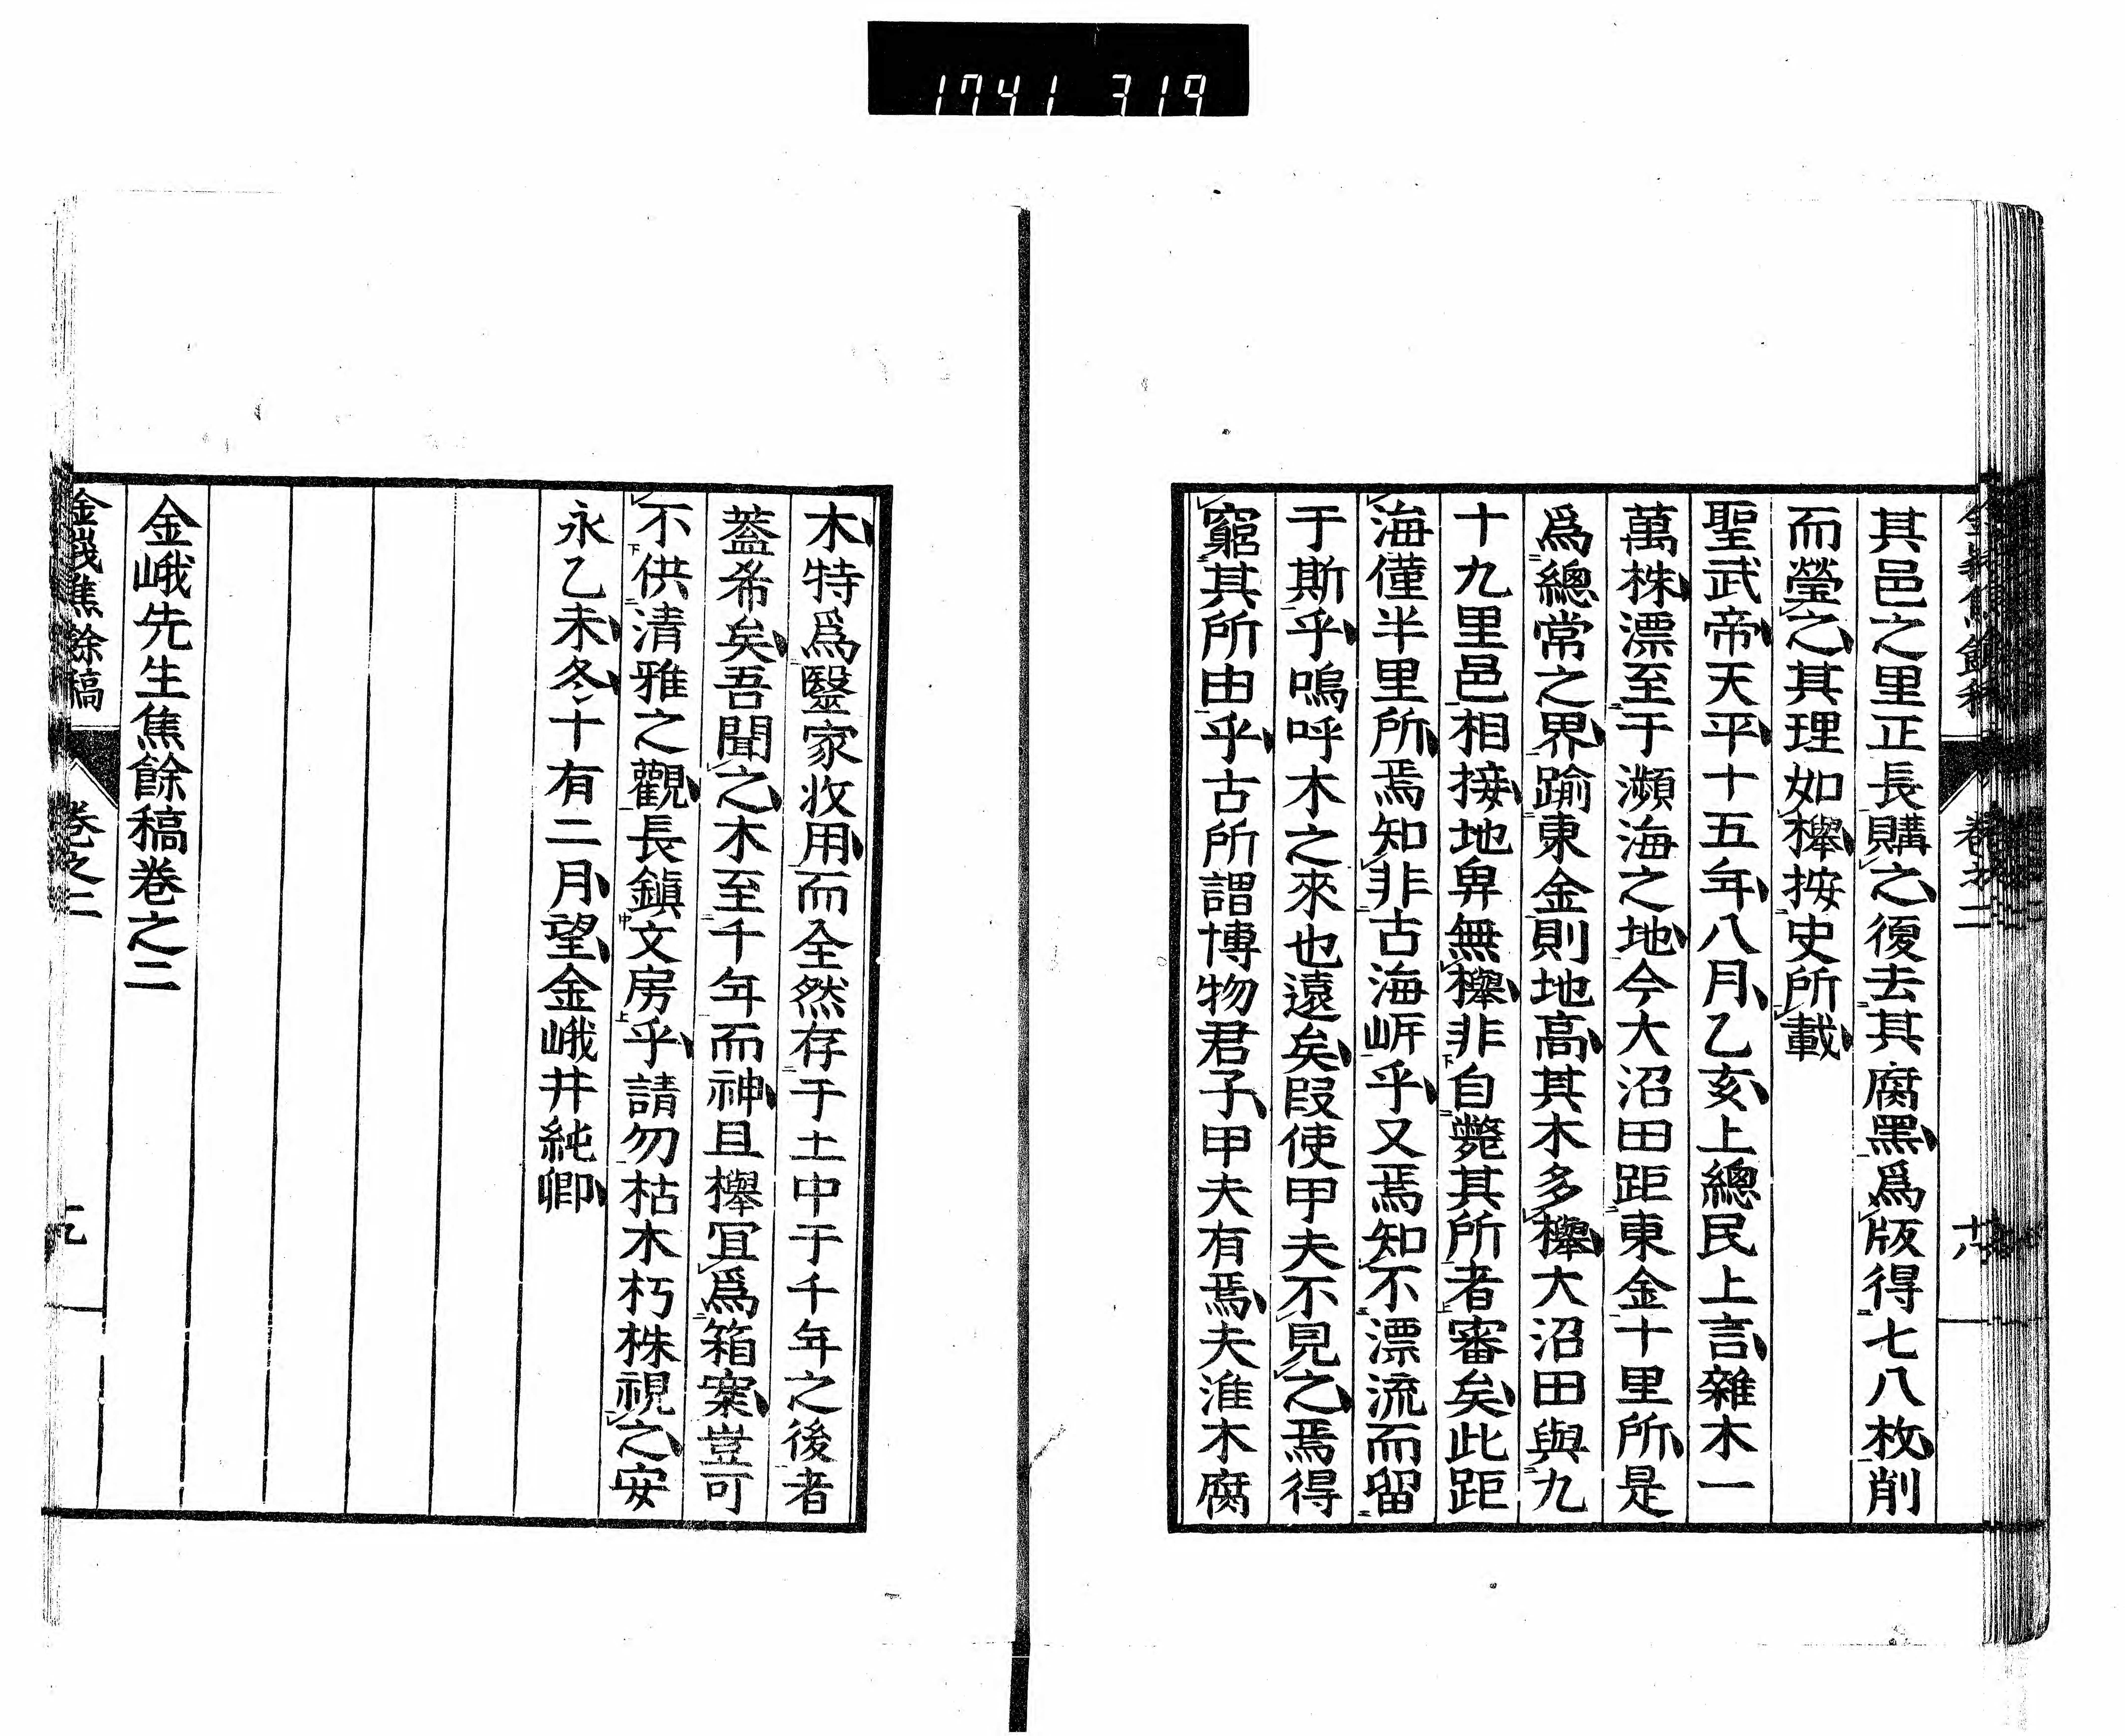 1741 319
金峨焦餘稿 卷之二 十八
其邑之里正長購之後去其腐黑爲版得七八枚削
而瑩之其理如櫸按史所載
聖武帝天平十五年八月乙亥上總民上言雜木一
萬株漂至于瀕海之地今大沼田距東金十里所是
爲總常之界踰東金則地高其木多櫸大沼田與九
十九里邑相接地卑無櫸非自斃其所者審矣此距
海僅半里所焉知非古海岍乎又焉知不漂流而留
于斯乎嗚呼木之來也遠矣叚使甲夫不見之焉得
窮其所由乎古所謂博物君子甲夫有焉夫淮木腐
木特爲毉家收用而全然存于土中于千年之後者
蓋希矣吾聞之木至千年而神且櫸冝爲箱案豈可
不供清雅之觀長鎭文房乎請勿枯木朽株視之安
永乙未冬十有二月望金峨井純卿
金峨先生焦餘稿卷之二
金峨焦餘稿 卷之二